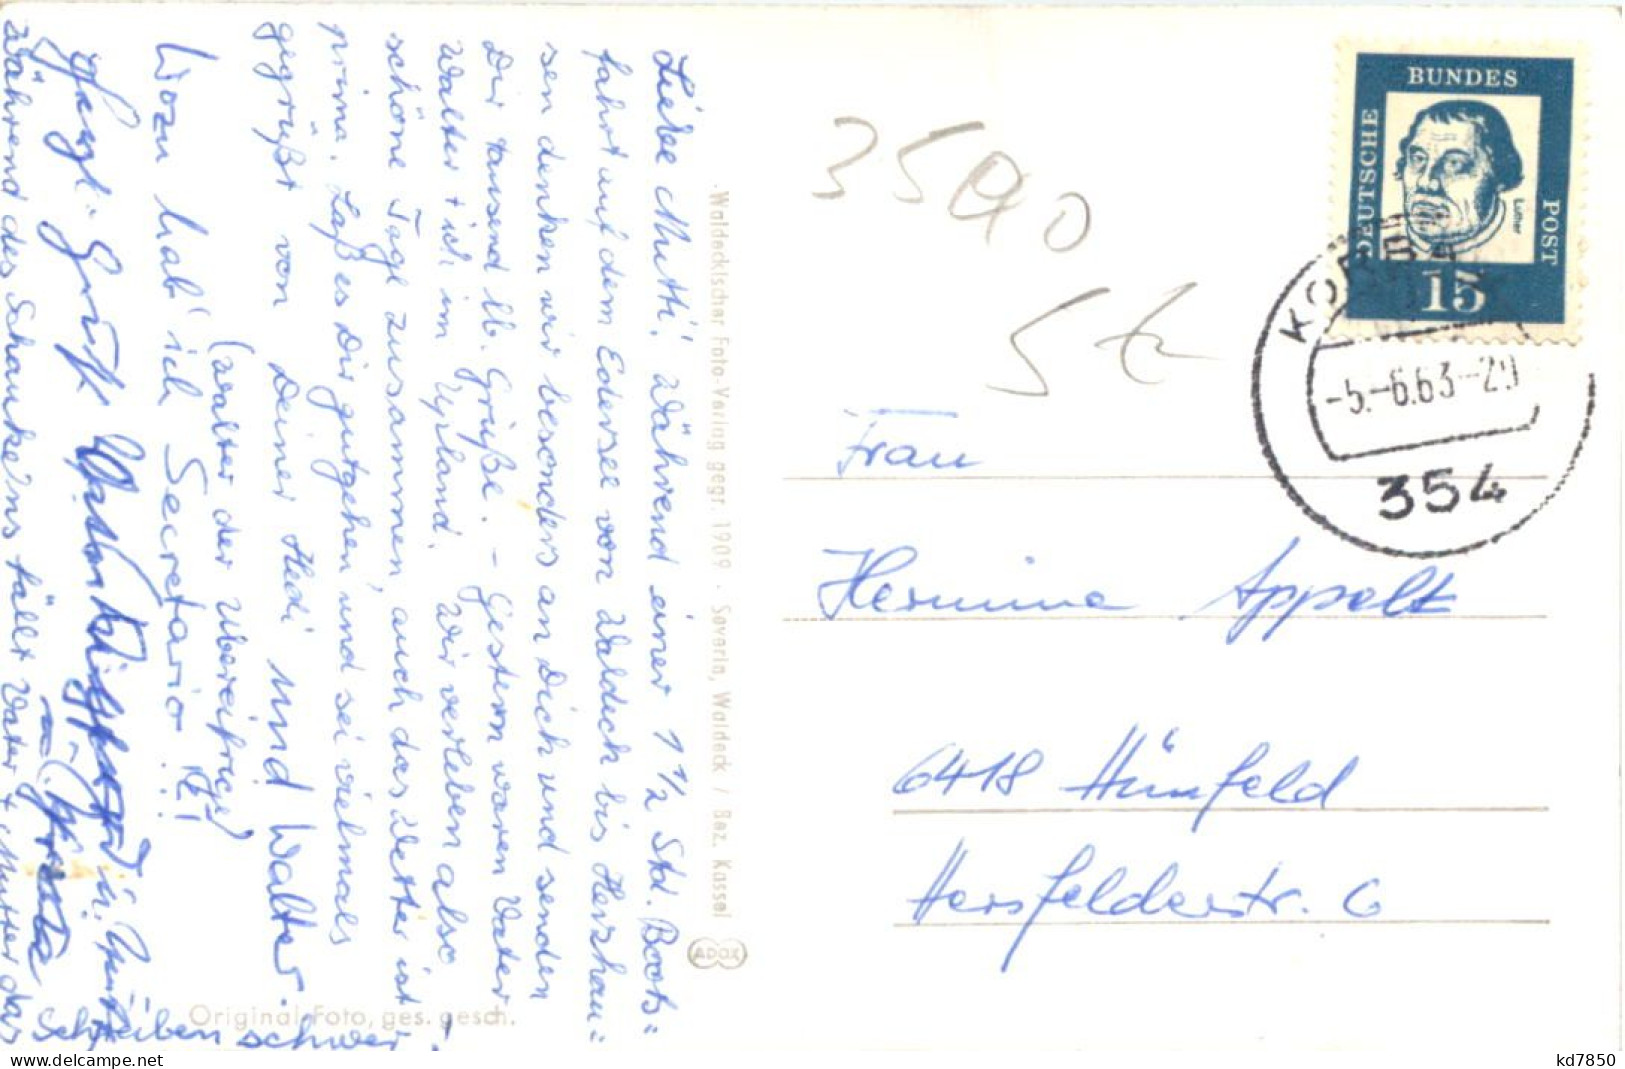 Liebe Mutti! Während einer 1 1/2 Std. Boots=
fahrt auf dem Edersee von Waldeck bis Herzhau=
sen denken wir besonders an Dich und senden
Dir tausend lb. Grüße. - Gestern waren Vater
Walter + ich im Upland. Wir verleben also
schöne Tage zusammen, auch das Wetter ist
prima. Laß es Dir gutgehen und sei vielmals
gegrüßt von Deiner Hedi und Walter.
(Walter der Übereifrige)
Wozu hab' ich Secretario!!
Herzl. Gruß
Während des Schaukelns fällt Vater + Mutter das
Schreiben schwer!
Original-Foto, ges. gesch.
·Waldeckischer Foto-Verlag gegr. 1909 · Severin, Waldeck / Bez. Kassel
ADOX
3540
5 €
DEUTSCHE
BUNDES
POST
Luther
15
KORBACH
-5.-6.63-20
354
Frau
Hermine Appelt
6418 Hünfeld
Hersfelderstr. 6
www.delcampe.net
kd7850